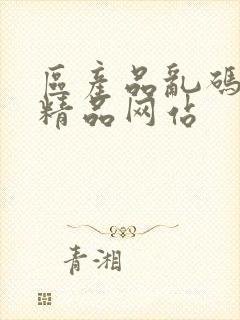 區產品亂碼
精品网佔
青湘